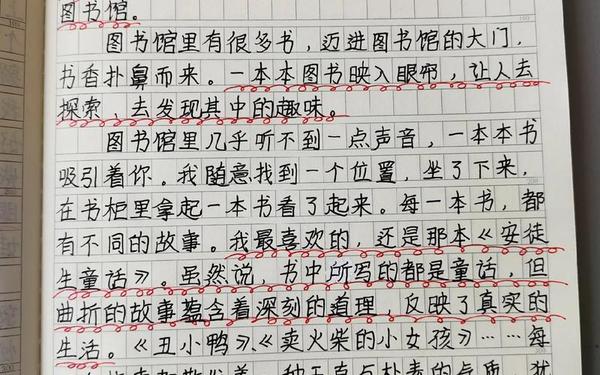 图书馆。
图书馆里有很多书，迈进图书馆的大门，
书香扑鼻而来。一本本图书映入眼帘，让人去
探索，去发现其中的趣味。
图书馆里几乎听不到一点声音，一本本书
吸引着你。我随意找到一个位置，坐了下来，
在书柜里拿起一本书看了起来。每一本书，都
有不同的故事。我最喜欢的，还是那本《安徒
生童话》。虽然说，书中所写的都是童话，但
曲折的故事蕴含着深刻的道理，反映了真实的
生活。《丑小鸭》、《卖火柴的小女孩》……每